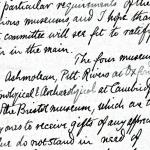 particular requirements of the
ious museums, and I hope that
committee will see fit to ratify
in the main.
The four museum
Ashmolean, Pitt Rivers at Oxford
nological & Archaeological at Cambrid
the Bristol museum, which are t
yones to receive gifts of any appre
ue do not stand in need of